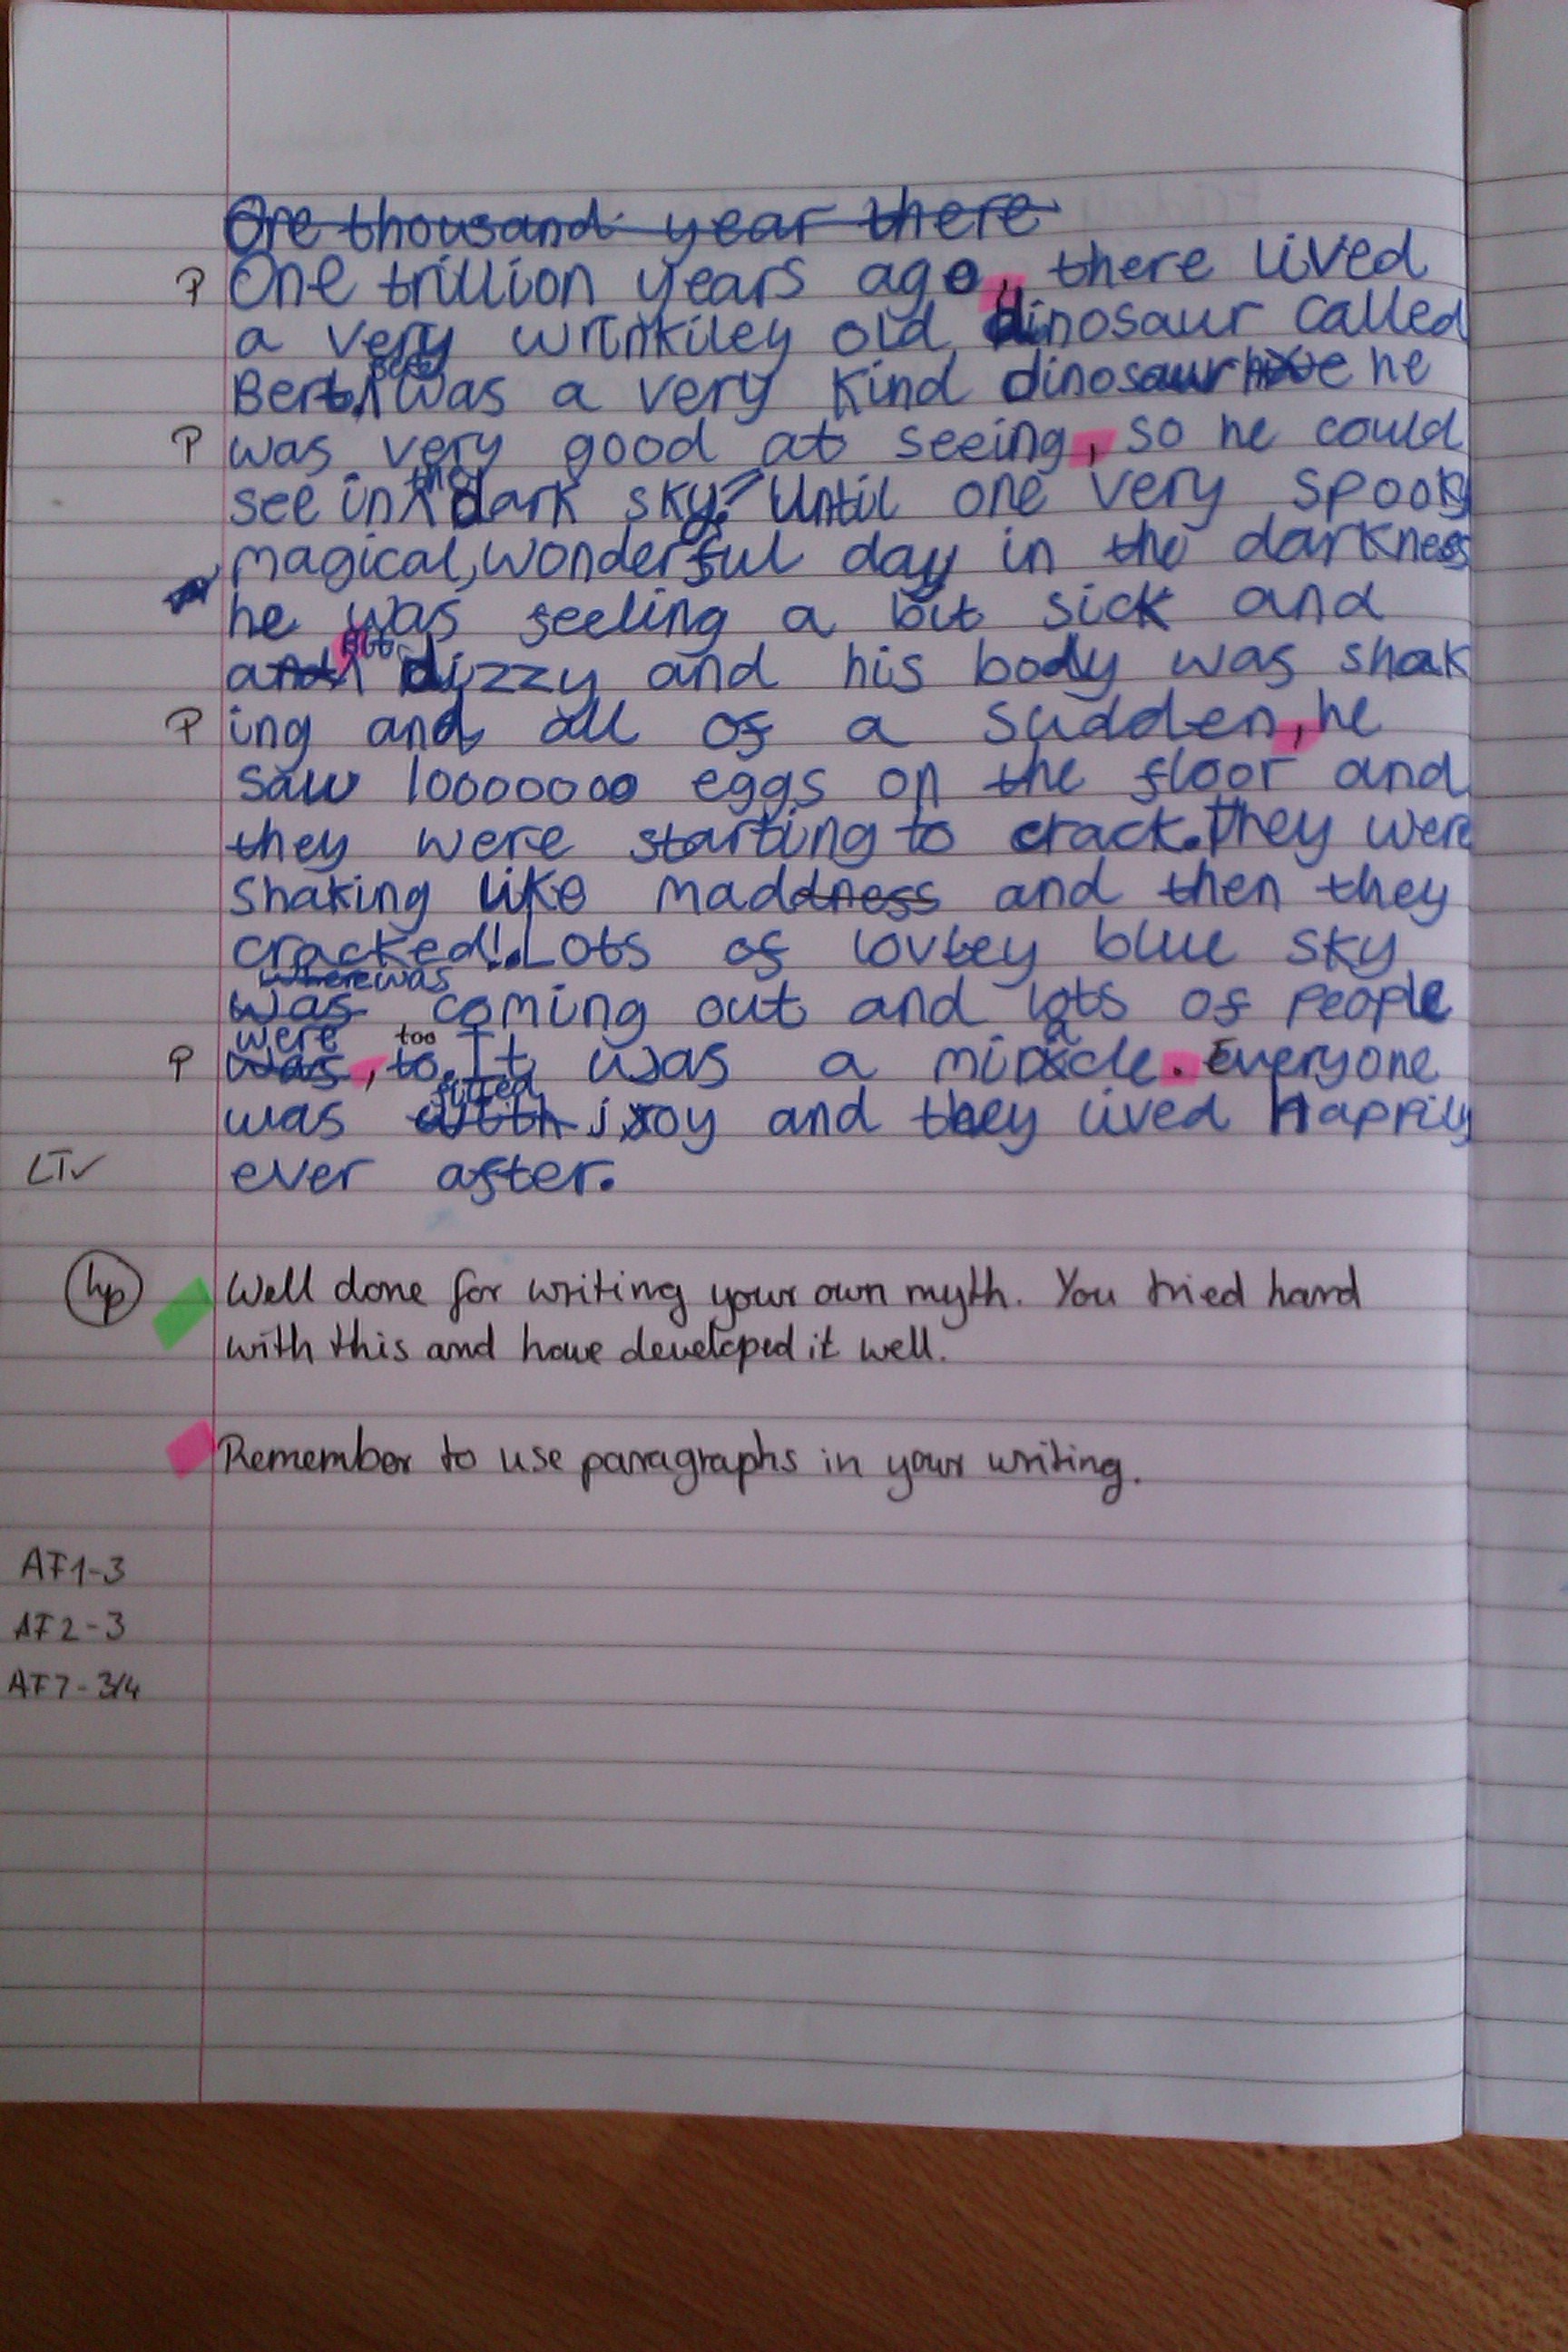 One thousand year there
P One trillion years ago, there lived
a very wrinkiley old dinosaur called
Bert. Bert was a very kind dinosaur he
P was very good at seeing, so he could
see in the dark sky. Until one very spooky
magical, wonderful day in the darkness
he was feeling a bit sick and
and bit dizzy and his body was shak
P ing and all of a sudden, he
saw 10000000 eggs on the floor and
they were starting to crack. They were
shaking like maddness and then they
cracked! Lots of lovley blue sky
where was
was coming out and lots of people
were too
P was, to. It was a miracle. Everyone
filled
was with joy and they lived happily
LT✓ ever after.
hp Well done for writing your own myth. You tried hard
with this and have developed it well.
Remember to use paragraphs in your writing.
AF1-3
AF2-3
AF7-3/4